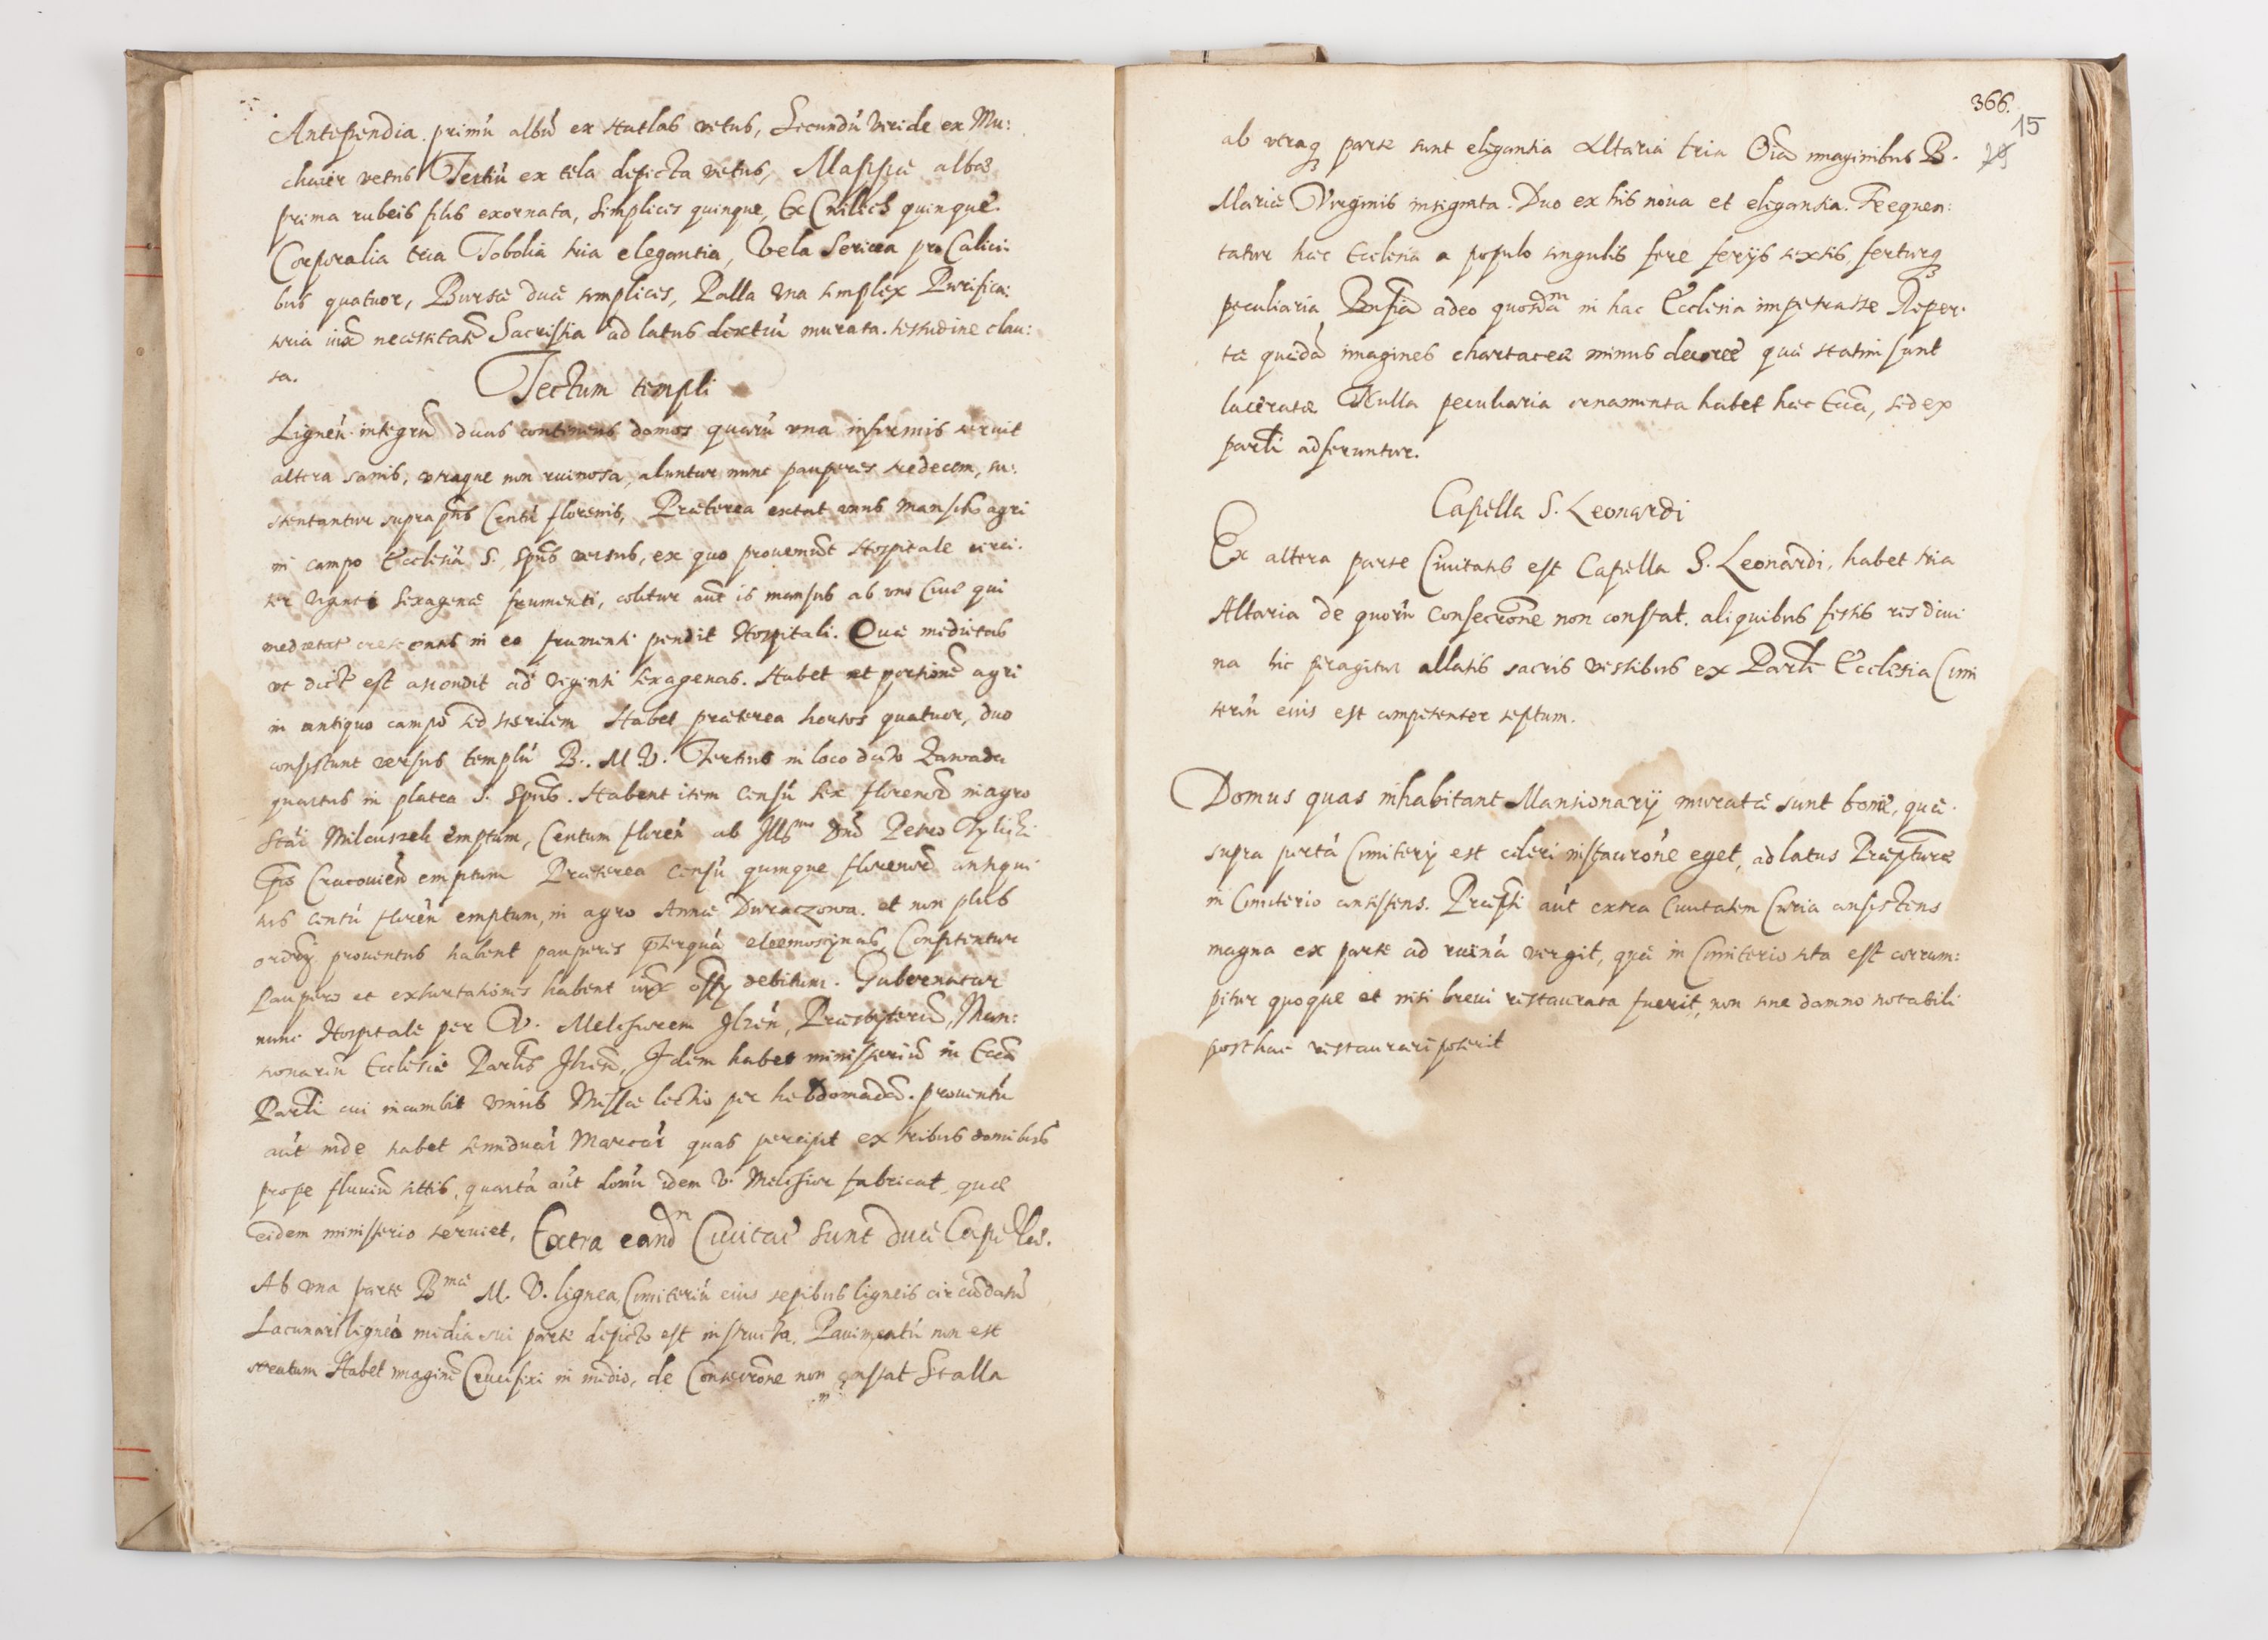 Antependia primũ albũ ex Hatlas vetus, Secundũ Viride ex Mu:
chaier vetus Tertiũ ex tela depicta vetus, Mappæ albæ
prima rubeis filis exornata, Simplices quinque, Ex quinque.
Corporalia tria Tobolia tria elegantia, Vela Sericea pro Calici:
bus quatuor, Bursæ duæ simplices, Palla Vna simplex Purifica:
toria iux necessitatẽ Sacristia ad latus dextrũ murata testudine clau:
sa.
Tectum templi
Ligneũ integrũ duas continens domos quarũ vna infirmis seruit
altera sanis, vtraque non ruinosa, aluntur nunc pauperes sedecem, su:
stentantur supra Centũ florenis, Præterea extat vnus mansus agri
in campo Ecclesiã S. Spũs versus, ex quo proueniũt Hospitale circi:
ter viginti sexagenæ frumenti, colitur aũt is mansus ab vno Ciue qui
medietatẽ crescentis in eo frumenti pendit Hospitali. Quæ medietas
vt dictũ est ascendit ad viginti sexagenas. Habet et portionẽ agri
in antiquo campo sed sterilem Habet præterea hortos quatuor, duo
consistunt versus templũ B. M. V. Tertius in loco dicto Zawada
quartus in platea S. Spũs. Habent item Censũ sex florenorũ in agro
Milcuszek emptum, Centum floren̄ ab Illmo Dño Petro Tylicki
Epõ Cracouien̄ emptum Præterea Censũ quinque florenorũ antiqui
tus centũ floren̄ emptum, in agro Annæ Duraczowa. et non plus
proventus habent pauperes præterquã eleemosynas, Confitentur
Pauperes et exhortationes habent debitum. Gubernatur
nunc Hospitale per V. Melchiorem Ilzen̄, Præsbyterũ, Man:
sionariũ Ecclesiæ Parlis Ilzen̄, Idem habet ministeriũ in Eccã
Parli cui incumbit vnius Missæ lectio per hebdomadã. prouentũ
aũt inde habet Marcas quas percipit ex tribus domibus
prope fluuiũ sitis, quartã aũt domũ idem V. Melchior fabricat, quæ
eidem ministerio seruiet. Extra eandm Ciuitatẽ sunt duæ Capellæ.
Ab vna parte Bmæ M. V. lignea, Cimiteriũ eius sepibus ligneis circũdatũ
Lacunari ligneo media sui parte depicto est instructa. Pauimentũ non est
stratum Habet imaginẽ Crucifixi in medio, de Consecrõne non constat Stalla
366.
15
ab vtraq parte sunt elegantia Altaria tria Oĩa imaginibus B.
Mariæ Virginis insignita. Duo ex his noua et elegantia. Frequen:
tatur hæc Ecclesia a populo singulis fere ferijs sextis, ferturq
peculiaria Bnficia adeo quosdãm in hac Ecclesia impetrasse Reper:
tæ quædã imagines chartaceæ minus decoræ quæ statim sunt
laceratæ Nulla peculiaria ornamenta habet hæc Eccã, sed ex
parli adferuntur.
Capella S. Leonardi
Ex altera parte Ciuitatis est Capella S. Leonardi, habet tria
Altaria de quorũ Consecrõne non constat. aliquibus festis res diui
na hic peragitur allatis sacris vestibus ex Parli Ecclesia Cimi
teriũ eius est competenter septum.
Domus quas inhabitant Mansionarij muratæ sunt bonæ, quæ
supra portã Cimiterij est celeri instaurõne eget, ad latus Præpturæ
in Cimiterio consistens. Præpti aũt extra Ciuitatem Curia consistens
magna ex parte ad ruinã vergit, quæ in Cimiterio sita est corrum:
pitur quoque et nisi breui restaurata fuerit, non sine damno notabili
posthac restaurari poterit